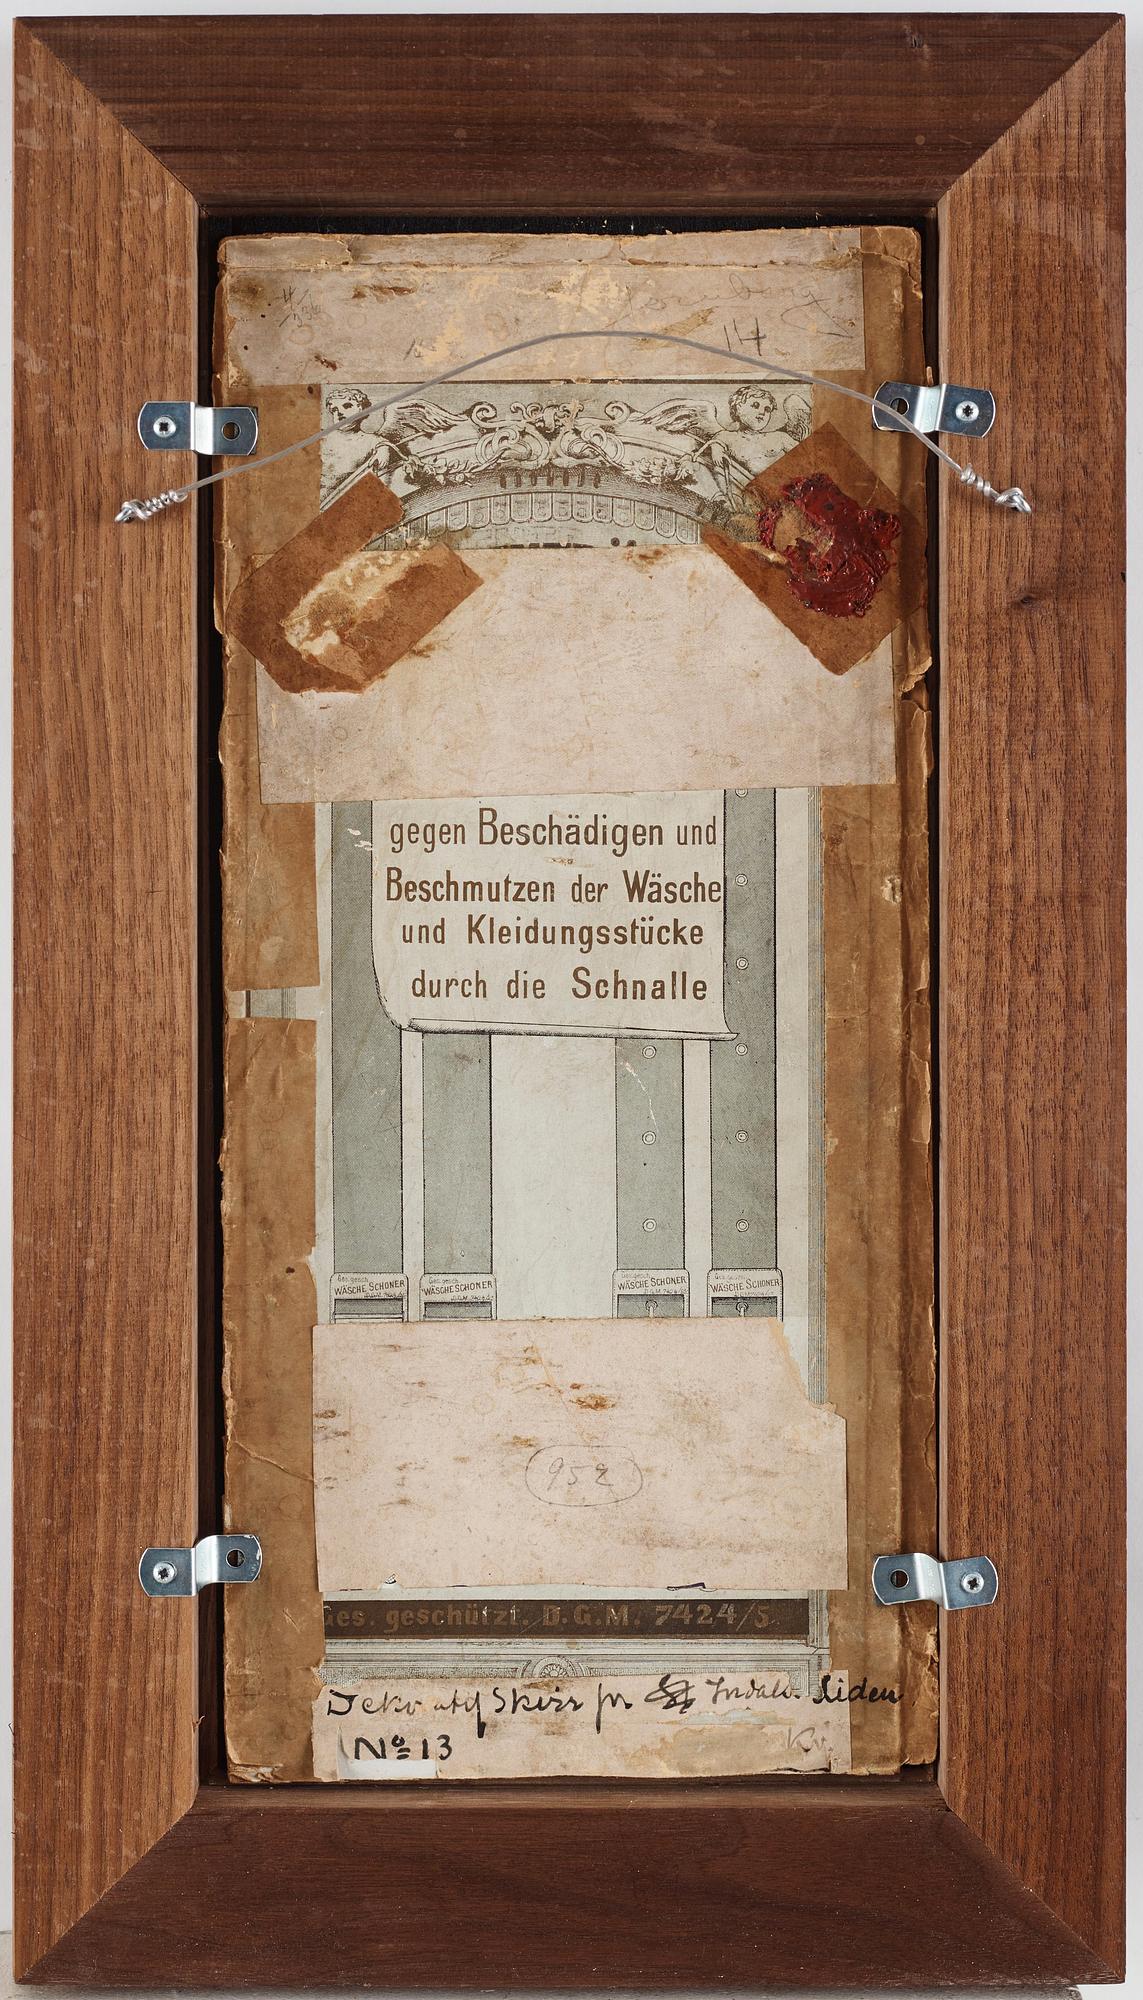 14
gegen Beschädigen und
Beschmutzen der Wäsche
und Kleidungsstücke
durch die Schnalle
Ges. gesch. WÄSCHE SCHONER D.G.M. 7424/5
Ges. gesch. WÄSCHE SCHONER D.G.M. 7424/5
Ges. gesch. WÄSCHE SCHONER D.G.M. 7424/5
Ges. gesch. WÄSCHE SCHONER D.G.M. 7424/5
952
Ges. geschützt. D.G.M. 7424/5.
Dekorativ Skizz för Siden
Nº 13